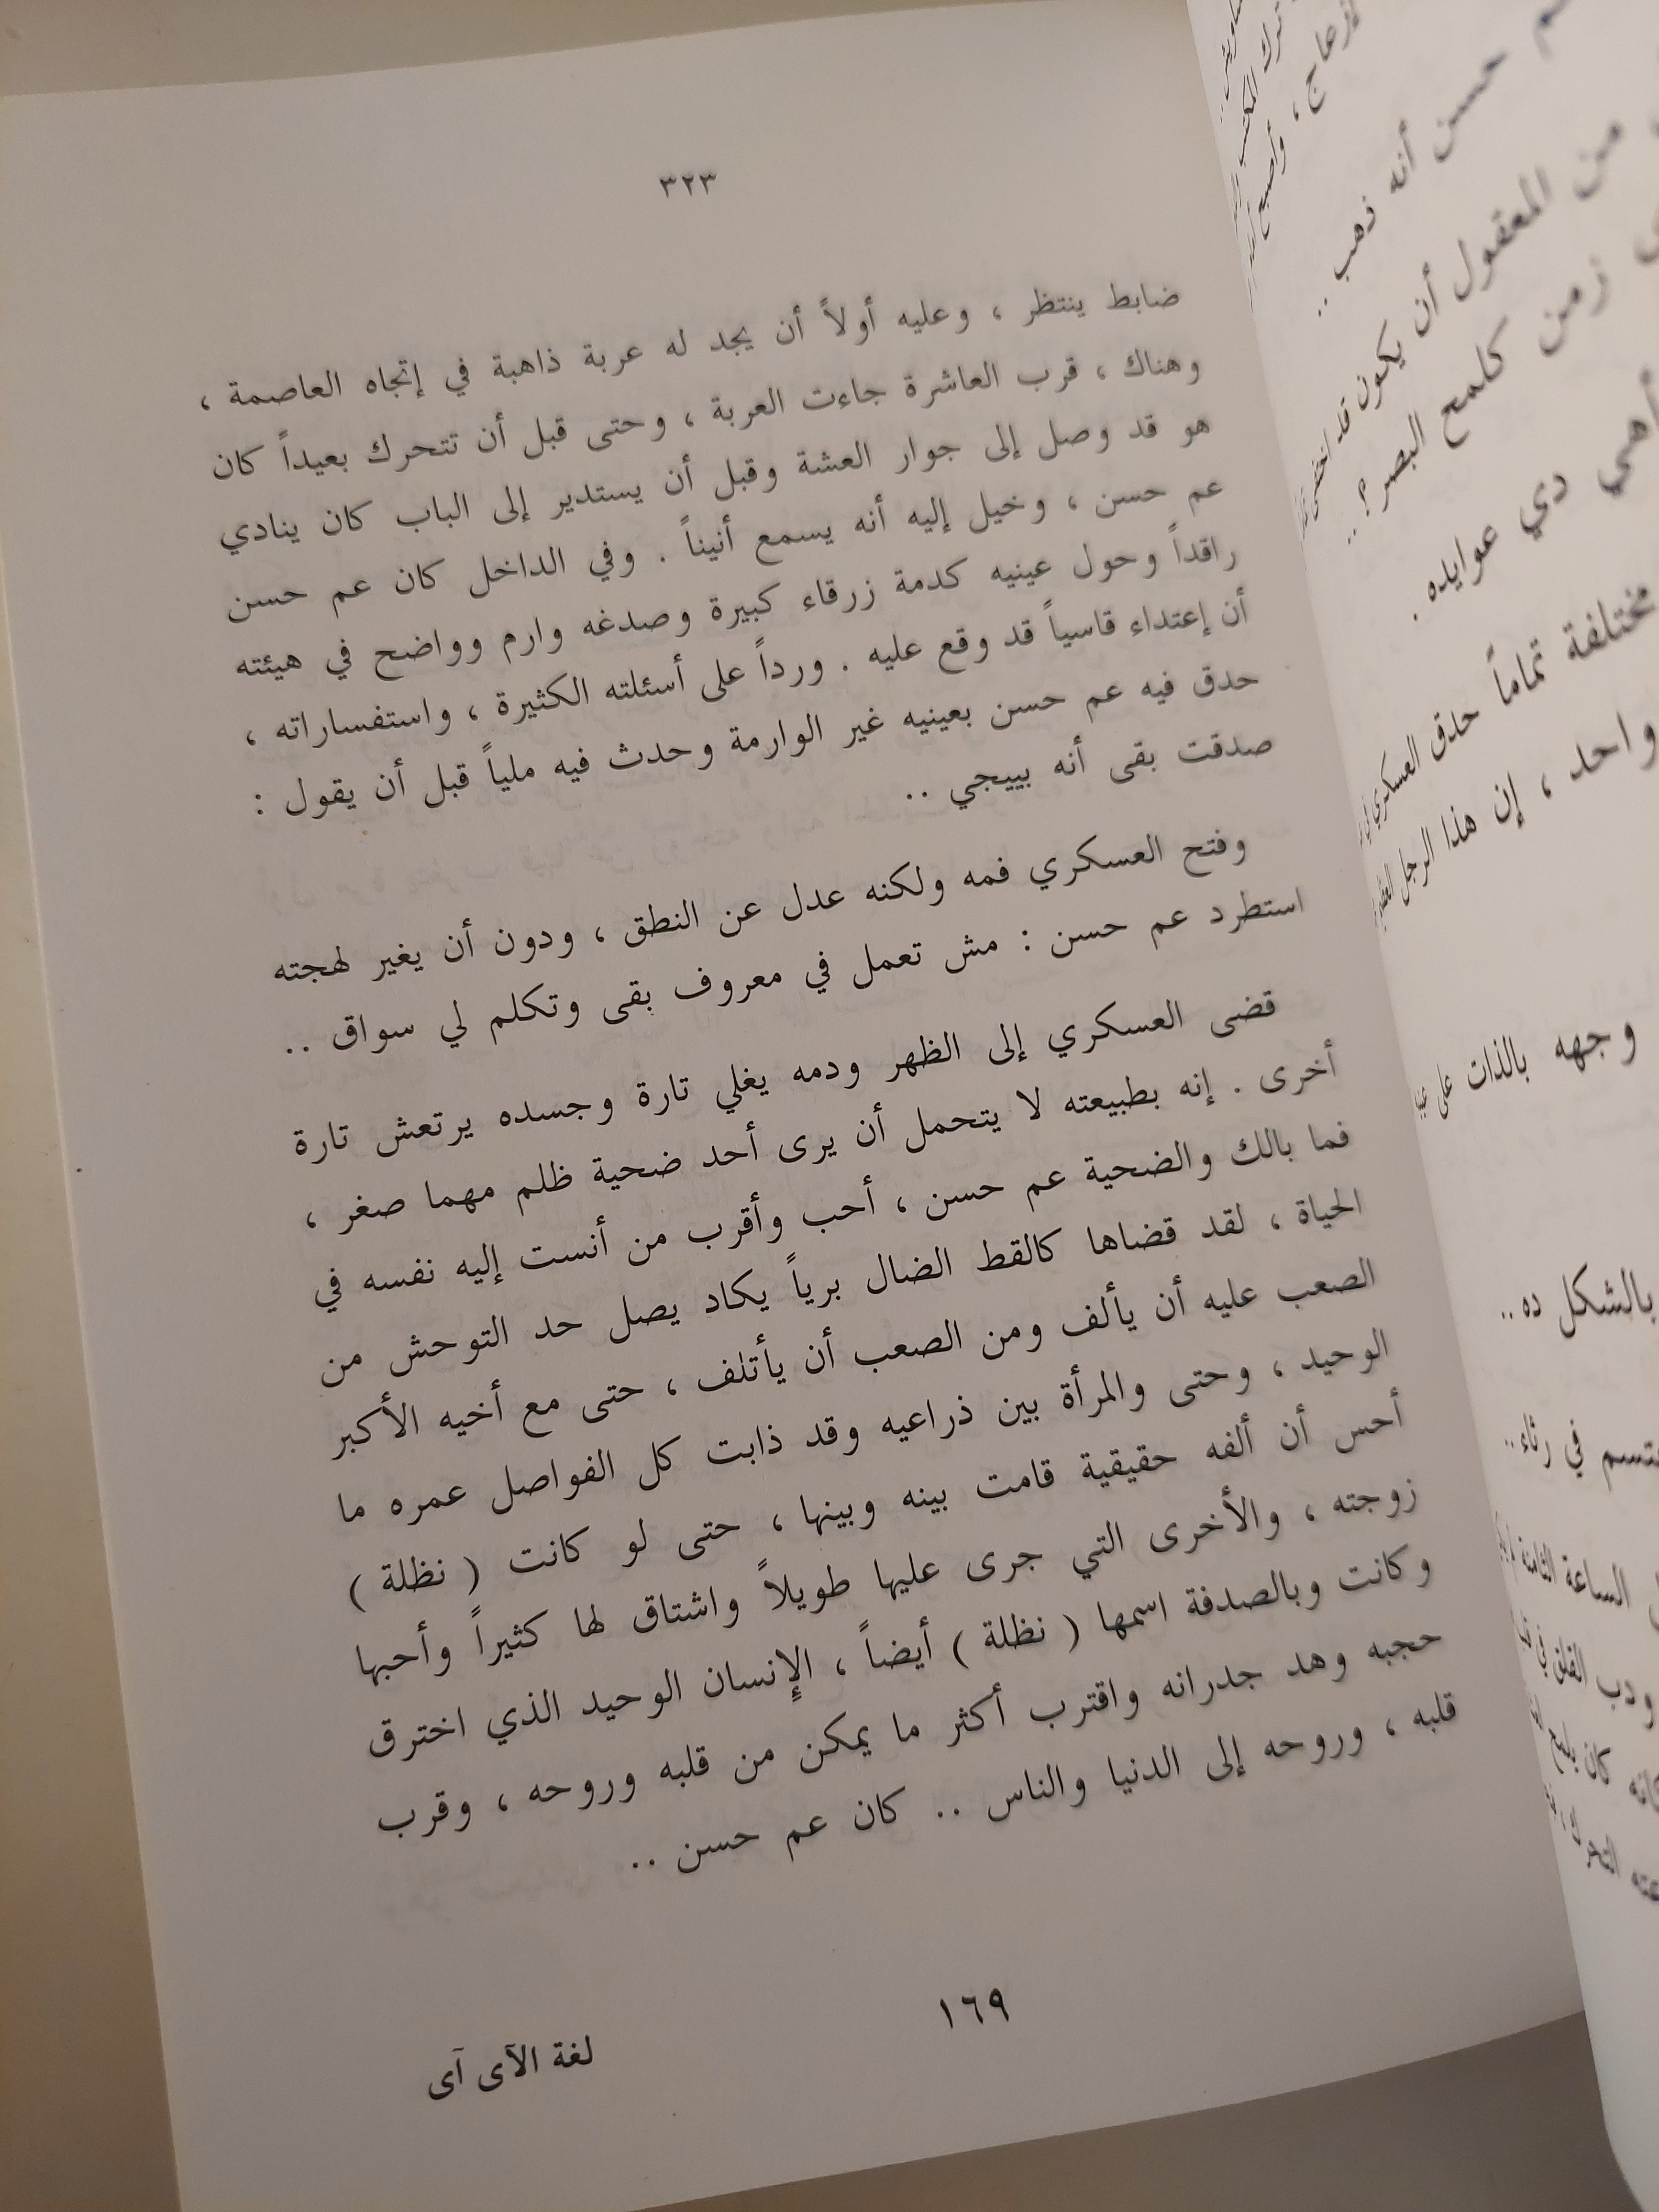 ٣٢٣
ضابط ينتظر ، وعليه أولاً أن يجد له عربة ذاهبة في إتجاه العاصمة ،
وهناك ، قرب العاشرة جاءت العربة ، وحتى قبل أن تتحرك بعيداً كان
هو قد وصل إلى جوار العشة وقبل أن يستدير إلى الباب كان ينادي
عم حسن ، وخيل إليه أنه يسمع أنيناً . وفي الداخل كان عم حسن
راقداً وحول عينيه كدمة زرقاء كبيرة وصدغه وارم وواضح في هيئته
أن إعتداء قاسياً قد وقع عليه . ورداً على أسئلته الكثيرة ، واستفساراته ،
حدق فيه عم حسن بعينيه غير الوارمة وحدث فيه ملياً قبل أن يقول :
صدقت بقى أنه بييجي ..
وفتح العسكري فمه ولكنه عدل عن النطق ، ودون أن يغير لهجته
استطرد عم حسن : مش تعمل في معروف بقى وتكلم لي سواق ..
قضى العسكري إلى الظهر ودمه يغلي تارة وجسده يرتعش تارة
أخرى . إنه بطبيعته لا يتحمل أن يرى أحد ضحية ظلم مهما صغر ،
فما بالك والضحية عم حسن ، أحب وأقرب من أنست إليه نفسه في
الحياة ، لقد قضاها كالقط الضال برياً يكاد يصل حد التوحش من
الصعب عليه أن يألف ومن الصعب أن يأتلف ، حتى مع أخيه الأكبر
الوحيد ، وحتى والمرأة بين ذراعيه وقد ذابت كل الفواصل عمره ما
أحس أن ألفه حقيقية قامت بينه وبينها ، حتى لو كانت ( نظلة )
زوجته ، والأخرى التي جرى عليها طويلاً واشتاق لها كثيراً وأحبها
وكانت وبالصدفة اسمها ( نظلة ) أيضاً ، الإنسان الوحيد الذي اخترق
حجبه وهد جدرانه واقترب أكثر ما يمكن من قلبه وروحه ، وقرب
قلبه ، وروحه إلى الدنيا والناس .. كان عم حسن ..
١٦٩
لغة الآى آى
حسن أنه ذهب ..
من المعقول أن يكون قد اختفى
زمن كلمح البصر ؟ ..
دي عوايده .
مختلفة تماماً حدق العسكري
واحد ، إن هذا الرجل
وجهه بالذات على
بالشكل ده ..
في رثاء ..
الساعة الثامنة
ودب القلق في
كان